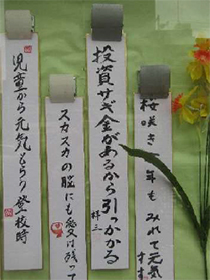 桜咲き年もみれて元気
投資サギ金があるから引っかかる
スカスカの脳にも愛は残って
児童から元気もらう登校時